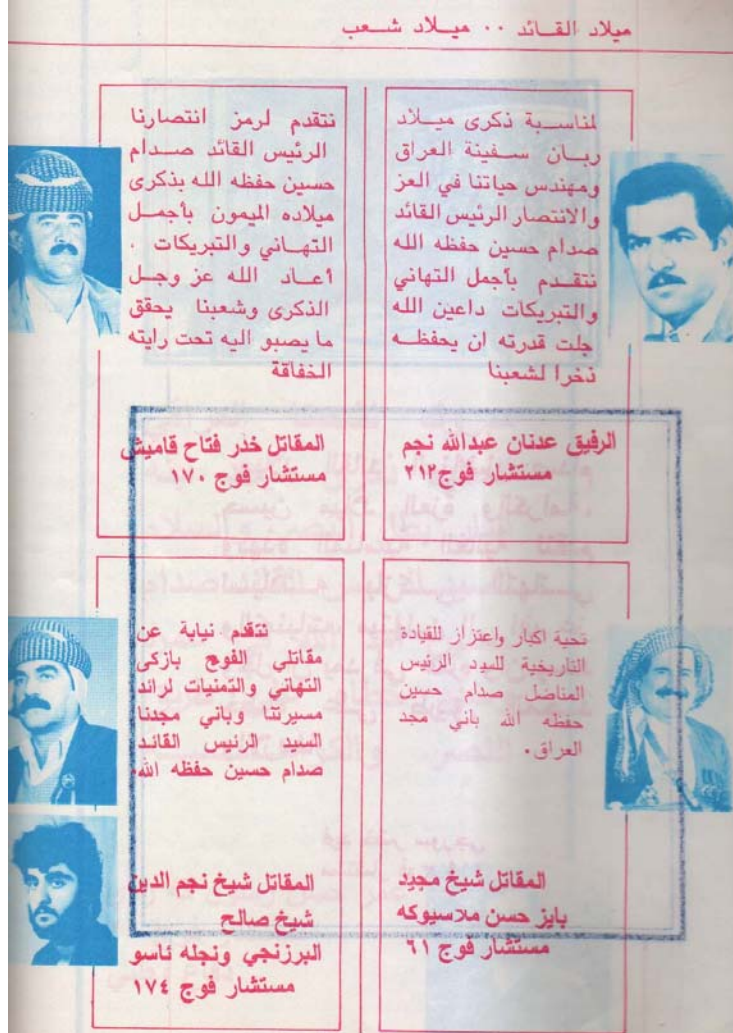 ميلاد القــائد ٠٠ ميــلاد شــعب
لمناســبة ذكرى ميــلاد
ربــان ســفينة العراق
ومهندس حياتنا في العز
والانتصار الرئيس القائد
صدام حسين حفظه الله
نتقــدم بأجمل التهاني
والتبريكات داعين الله
جلت قدرته ان يحفظــه
ذخرا لشعبنا
الرفيق عدنان عبدالله نجم
مستشار فوج ٢١٢
نتقدم لرمز انتصارنا
الرئيس القائد صــدام
حسين حفظه الله بذكرى
ميلاده الميمون بأجمــل
التهــاني والتبريكات .
أعــاد الله عز وجــل
الذكرى وشعبنا يحقق
ما يصبو اليه تحت رايته
الخفاقة
المقاتل خدر فتاح قاميش
مستشار فوج ١٧٠
تحية اكبار واعتزاز للقيادة
التاريخية للسيد الرئيس
المناضل صدام حسين
حفظه الله باني مجد
العراق.
المقاتل شيخ مجيد
بايز حسن ملاسيوكه
مستشار فوج ٦١
نتقدم نيابة عن
مقاتلي الفوج بازكى
التهاني والتمنيات لرائد
مسيرتنا وباني مجدنا
السيد الرئيس القائد
صدام حسين حفظه الله.
المقاتل شيخ نجم الدين
شيخ صالح
البرزنجي ونجله ئاسو
مستشار فوج ١٧٤